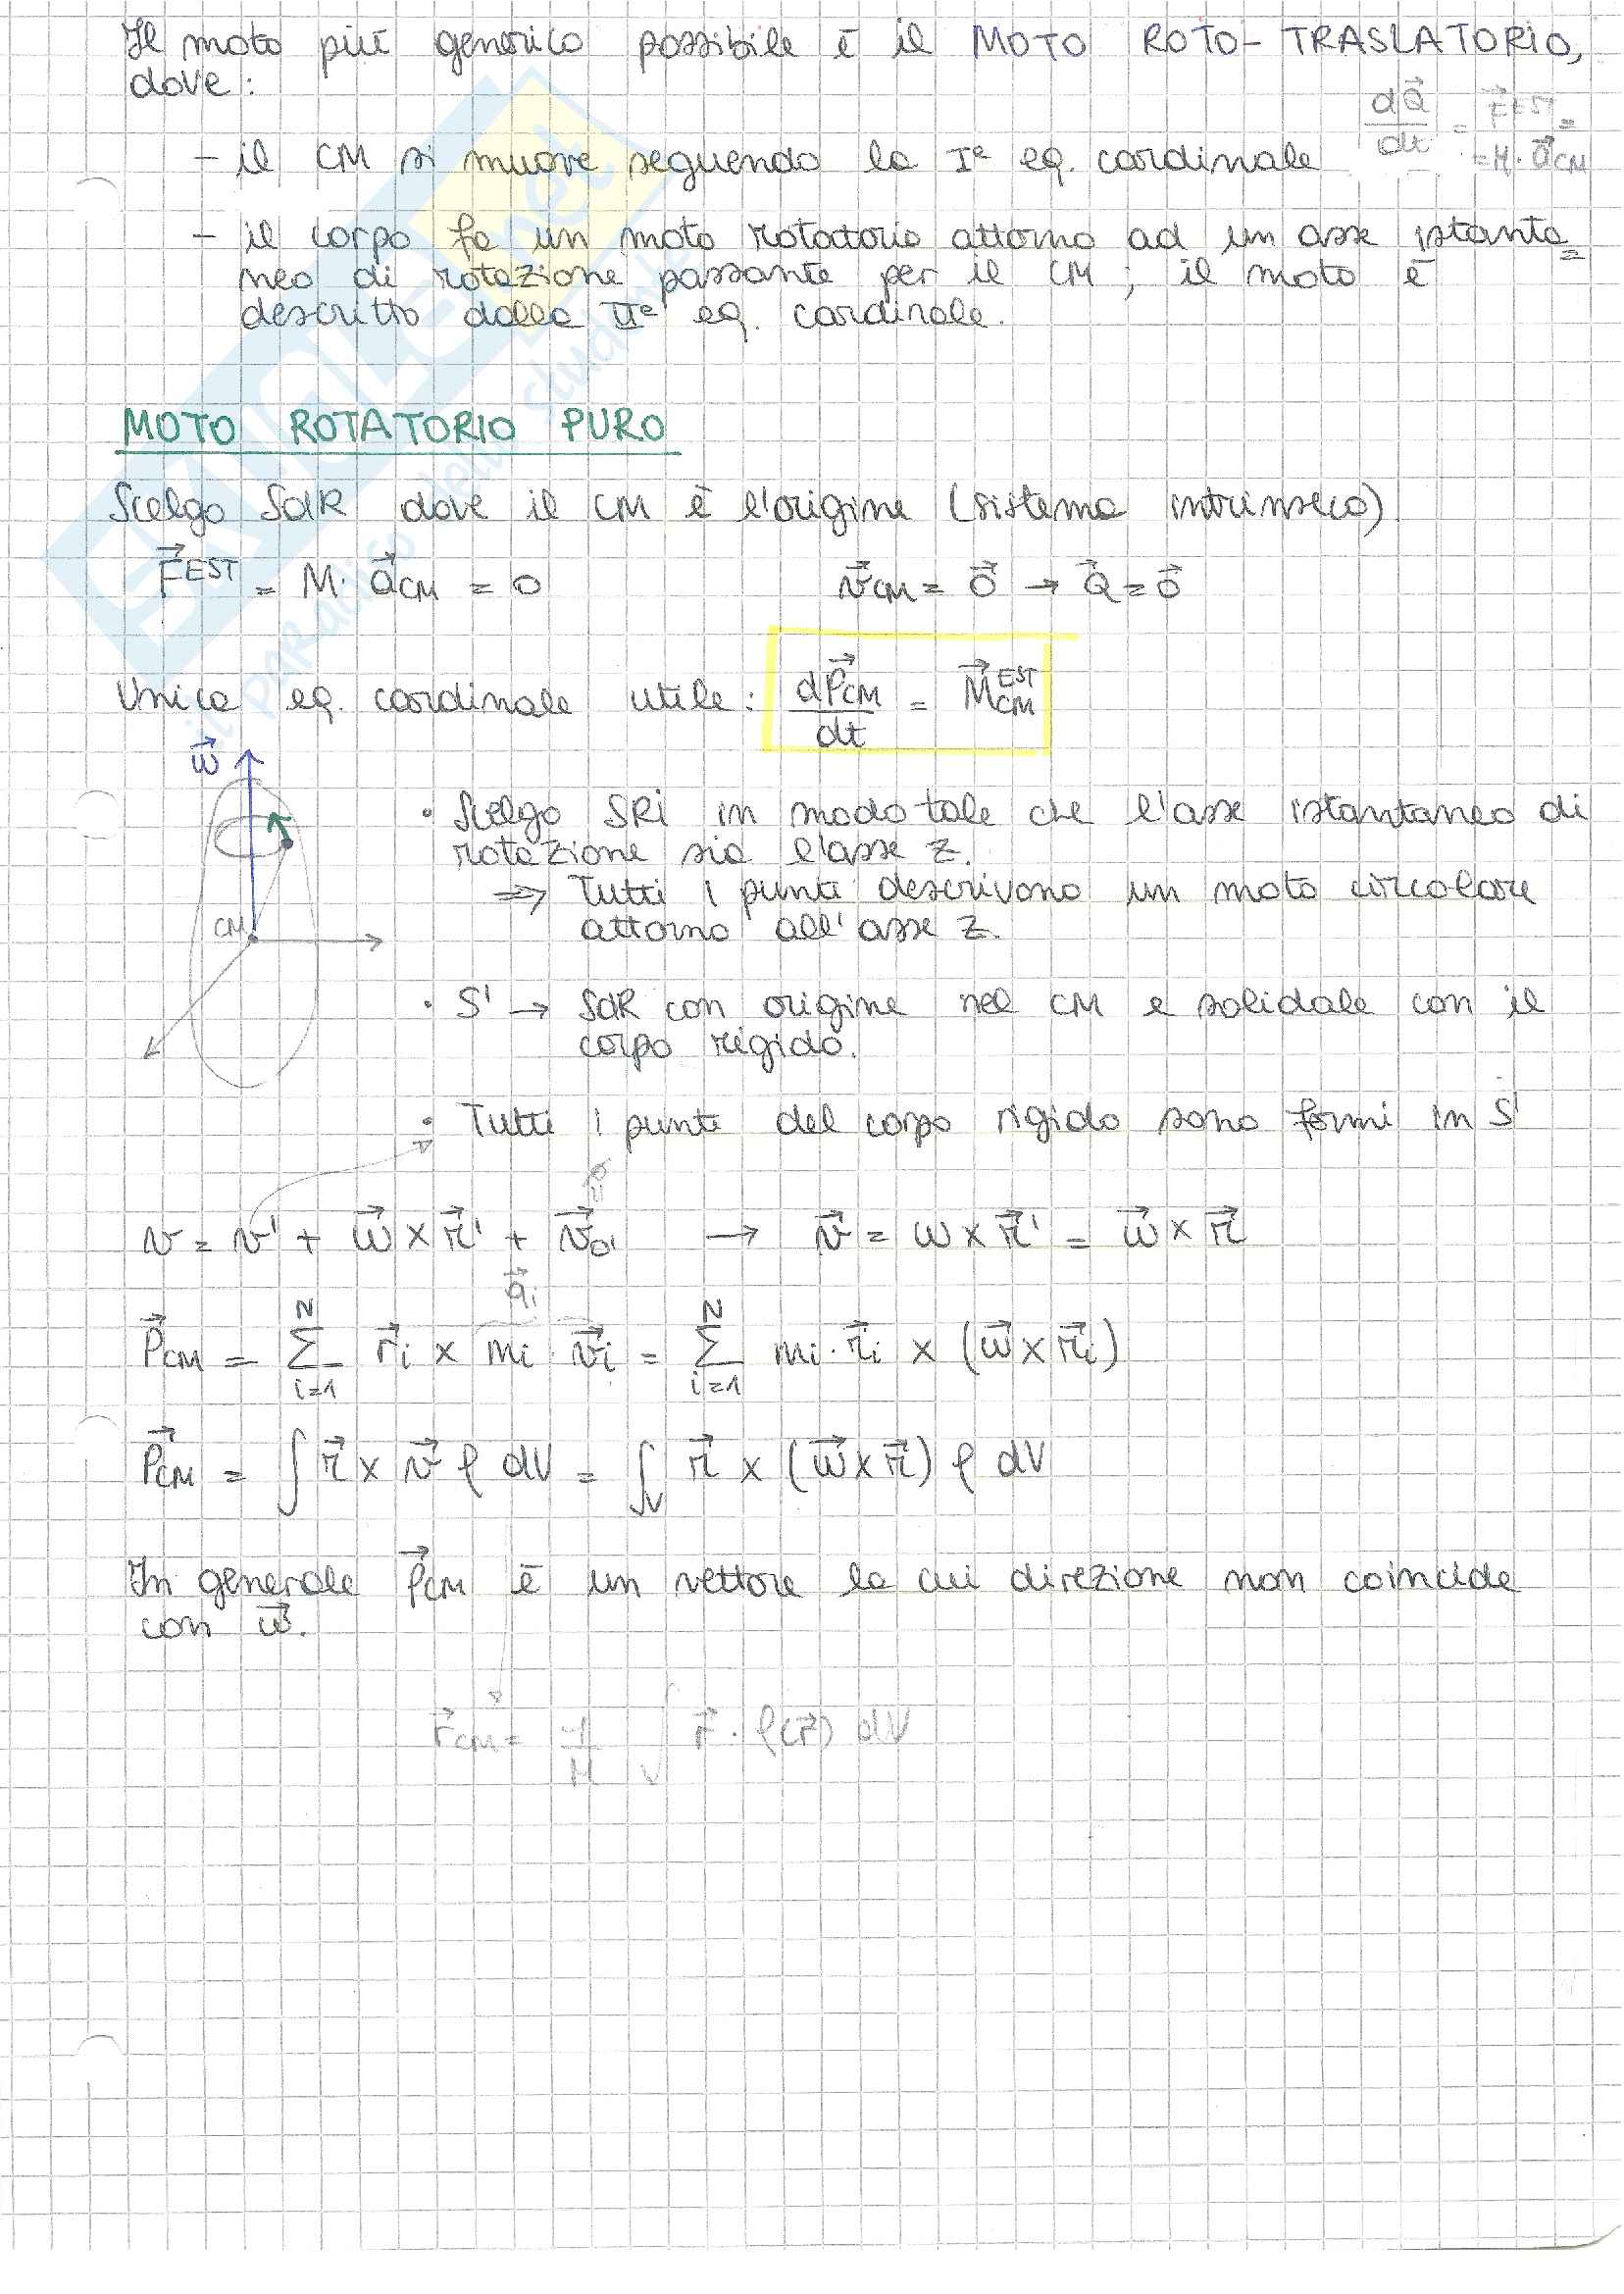 Il moto più generico possibile è il MOTO ROTO-TRASLATORIO,
dove:
- il CM si muove seguendo la Iª eq. cardinale
dQ⃗/dt = F⃗^EST = = M · a⃗_CM
- il corpo fa un moto rotatorio attorno ad un asse istanta=
neo di rotazione passante per il CM ; il moto è
descritto dalla IIª eq. cardinale.
MOTO ROTATORIO PURO
Scelgo SdR dove il CM è l'origine (sistema intrinseco)
F⃗^EST = M · a⃗_CM = 0 v⃗_CM = 0⃗ → Q⃗ = 0⃗
Unica eq. cardinale utile: dP⃗_CM/dt = M⃗_CM^EST
ω⃗
CM
• Scelgo SRI in modo tale che l'asse istantaneo di
rotazione sia l'asse z.
⇒ Tutti i punti descrivono un moto circolare
attorno all'asse z.
• S' → SdR con origine nel CM e solidale con il
corpo rigido.
• Tutti i punti del corpo rigido sono fermi in S'
v = v' + ω⃗ × r⃗' + v⃗_o' → v⃗ = ω × r⃗' = ω⃗ × r⃗
q⃗_i
P⃗_CM = Σ_{i=1}^{N} r⃗_i × m_i · v⃗_i = Σ_{i=1}^{N} m_i · r⃗_i × (ω⃗ × r⃗_i)
P⃗_CM = ∫ r⃗ × v⃗ ρ dV = ∫_V r⃗ × (ω⃗ × r⃗) ρ dV
In generale P⃗_CM è un vettore la cui direzione non coincide
con ω⃗.
r⃗_CM = 1/M ∫_V r⃗ · ρ(r⃗) dV